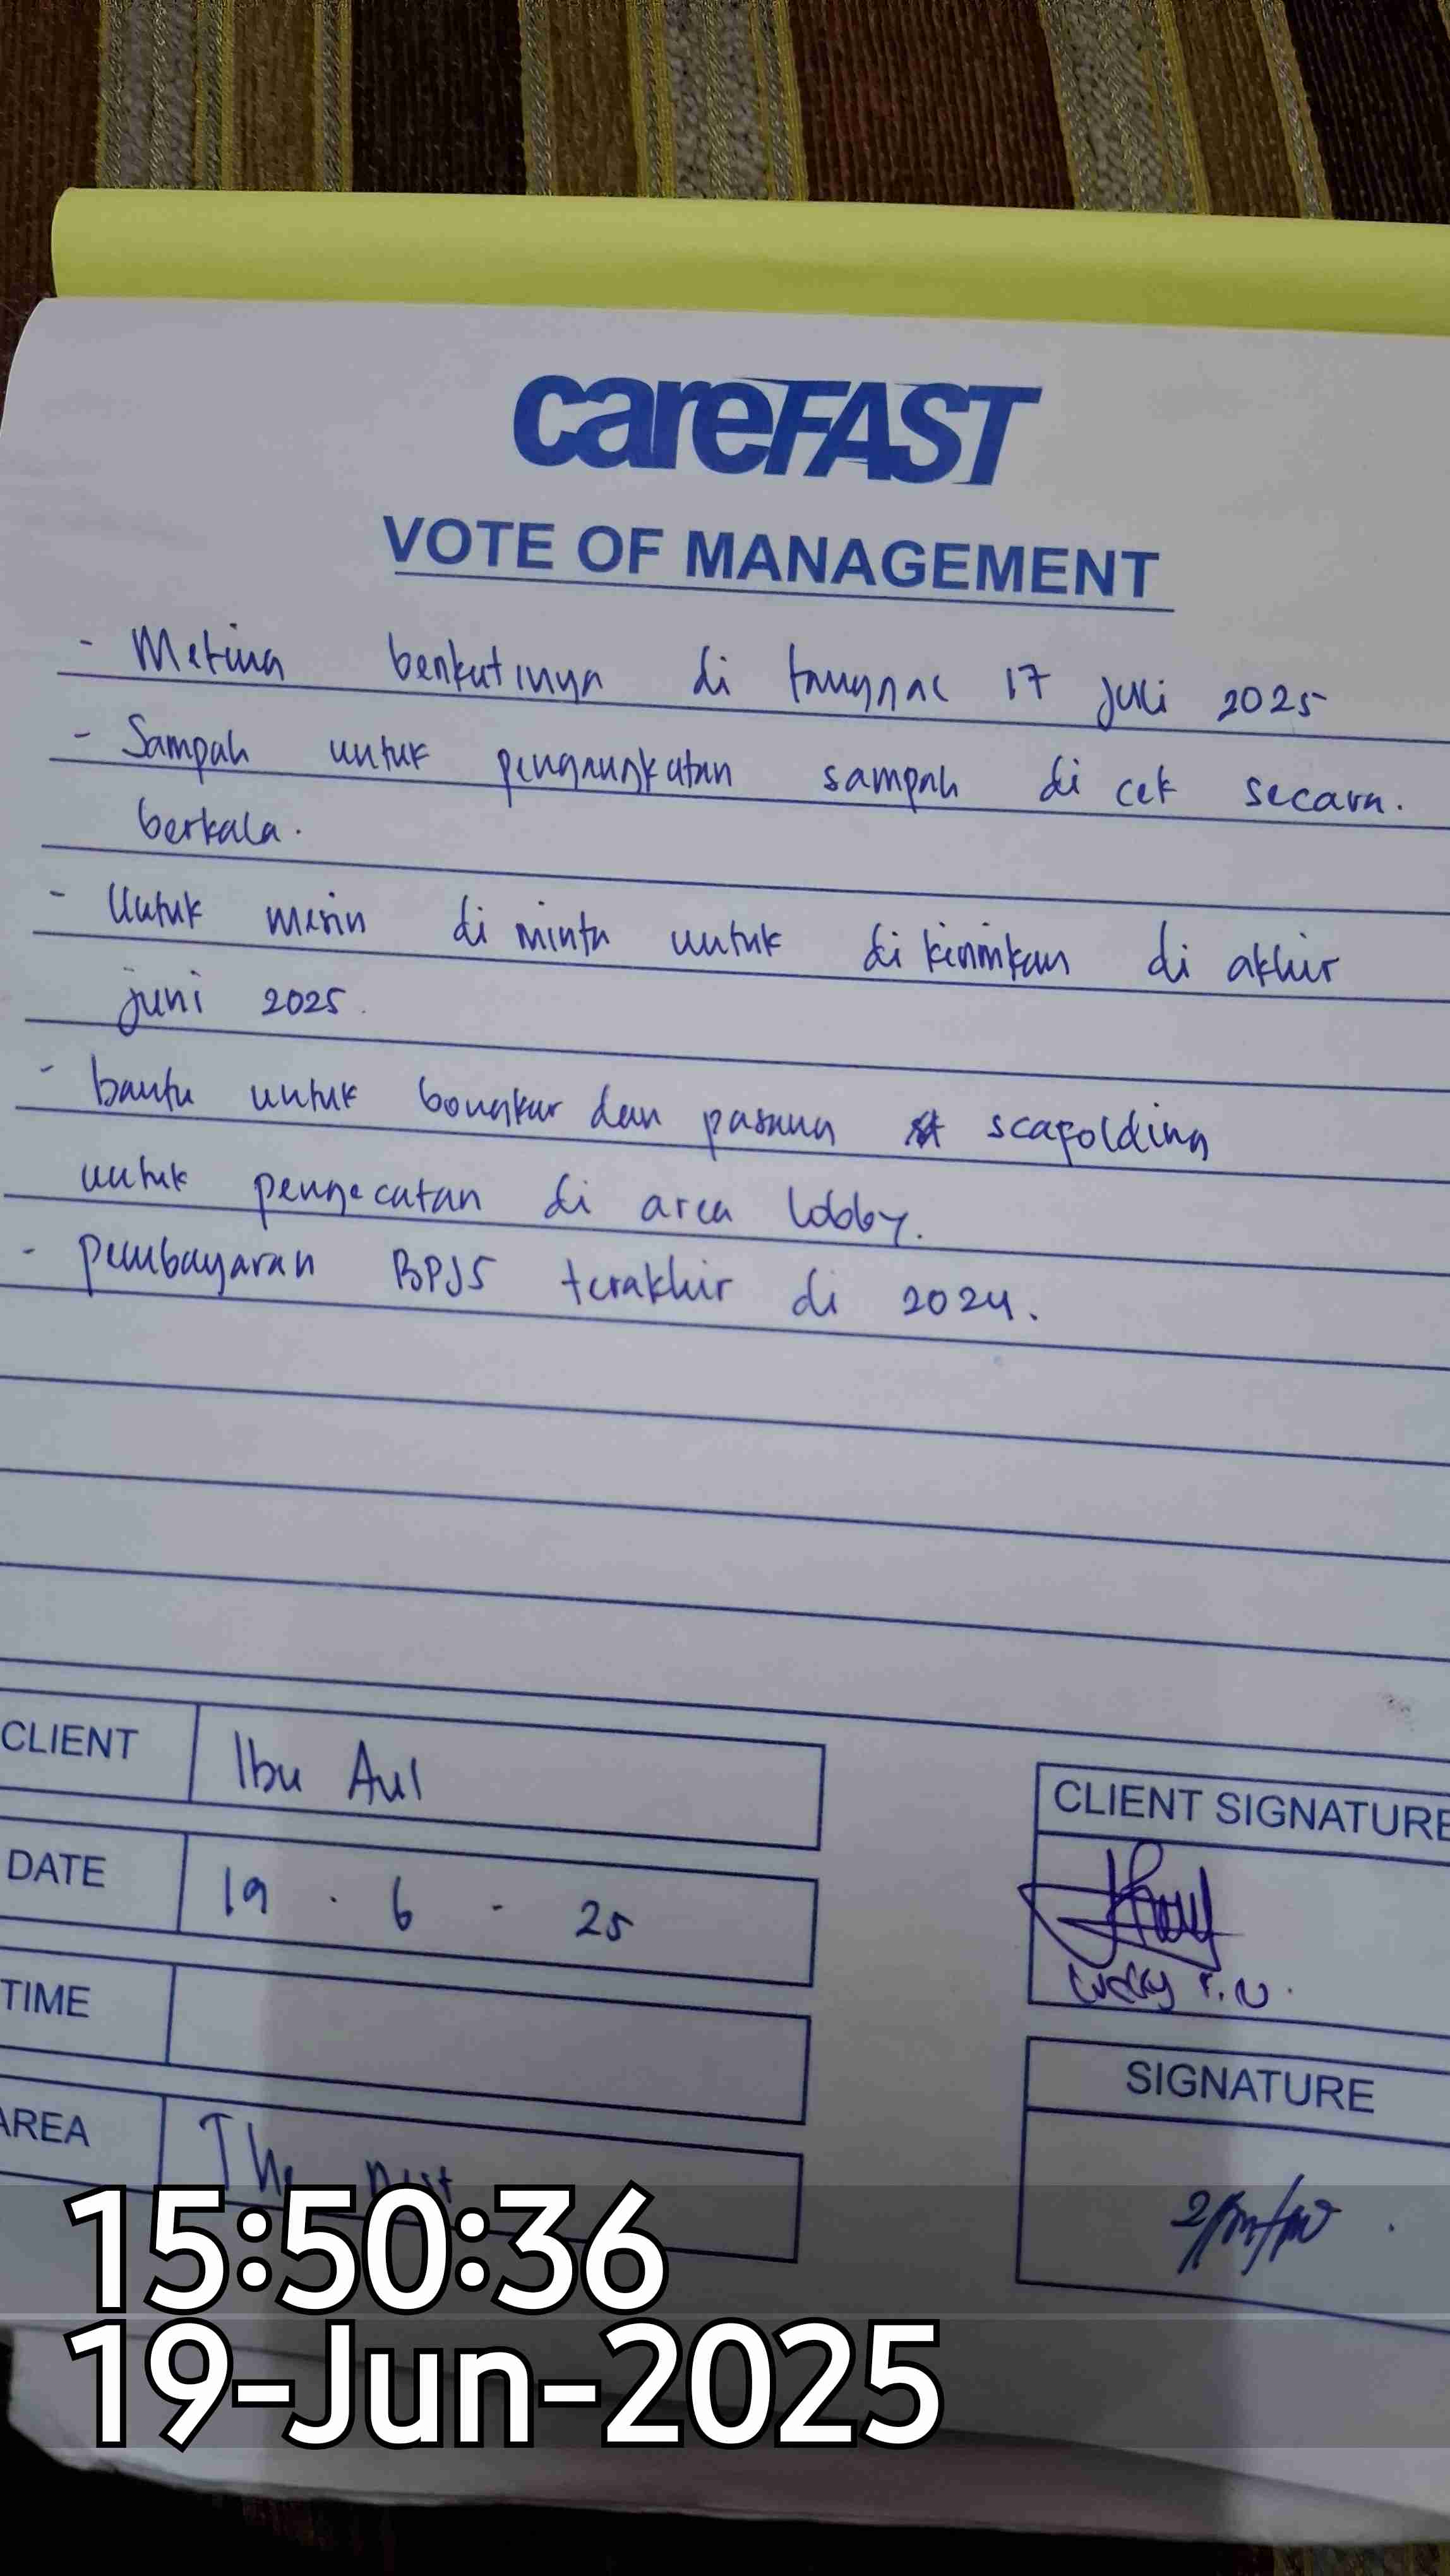 careFAST
VOTE OF MANAGEMENT
- Meting berikutinya di tanggal 17 juli 2025
- Sampah untuk pengangkatan sampah di cek secara.
berkala.
- Untuk mesin di minta untuk di kirimkan di akhir
juni 2025.
- bantu untuk bongkar dan pasang scafolding
untuk pengecatan di area lobby.
- pembayaran BPJS terakhir di 2024.
CLIENT Ibu Aul
CLIENT SIGNATURE
DATE 19 . 6 - 25
TIME
SIGNATURE
AREA The
15:50:36
19-Jun-2025